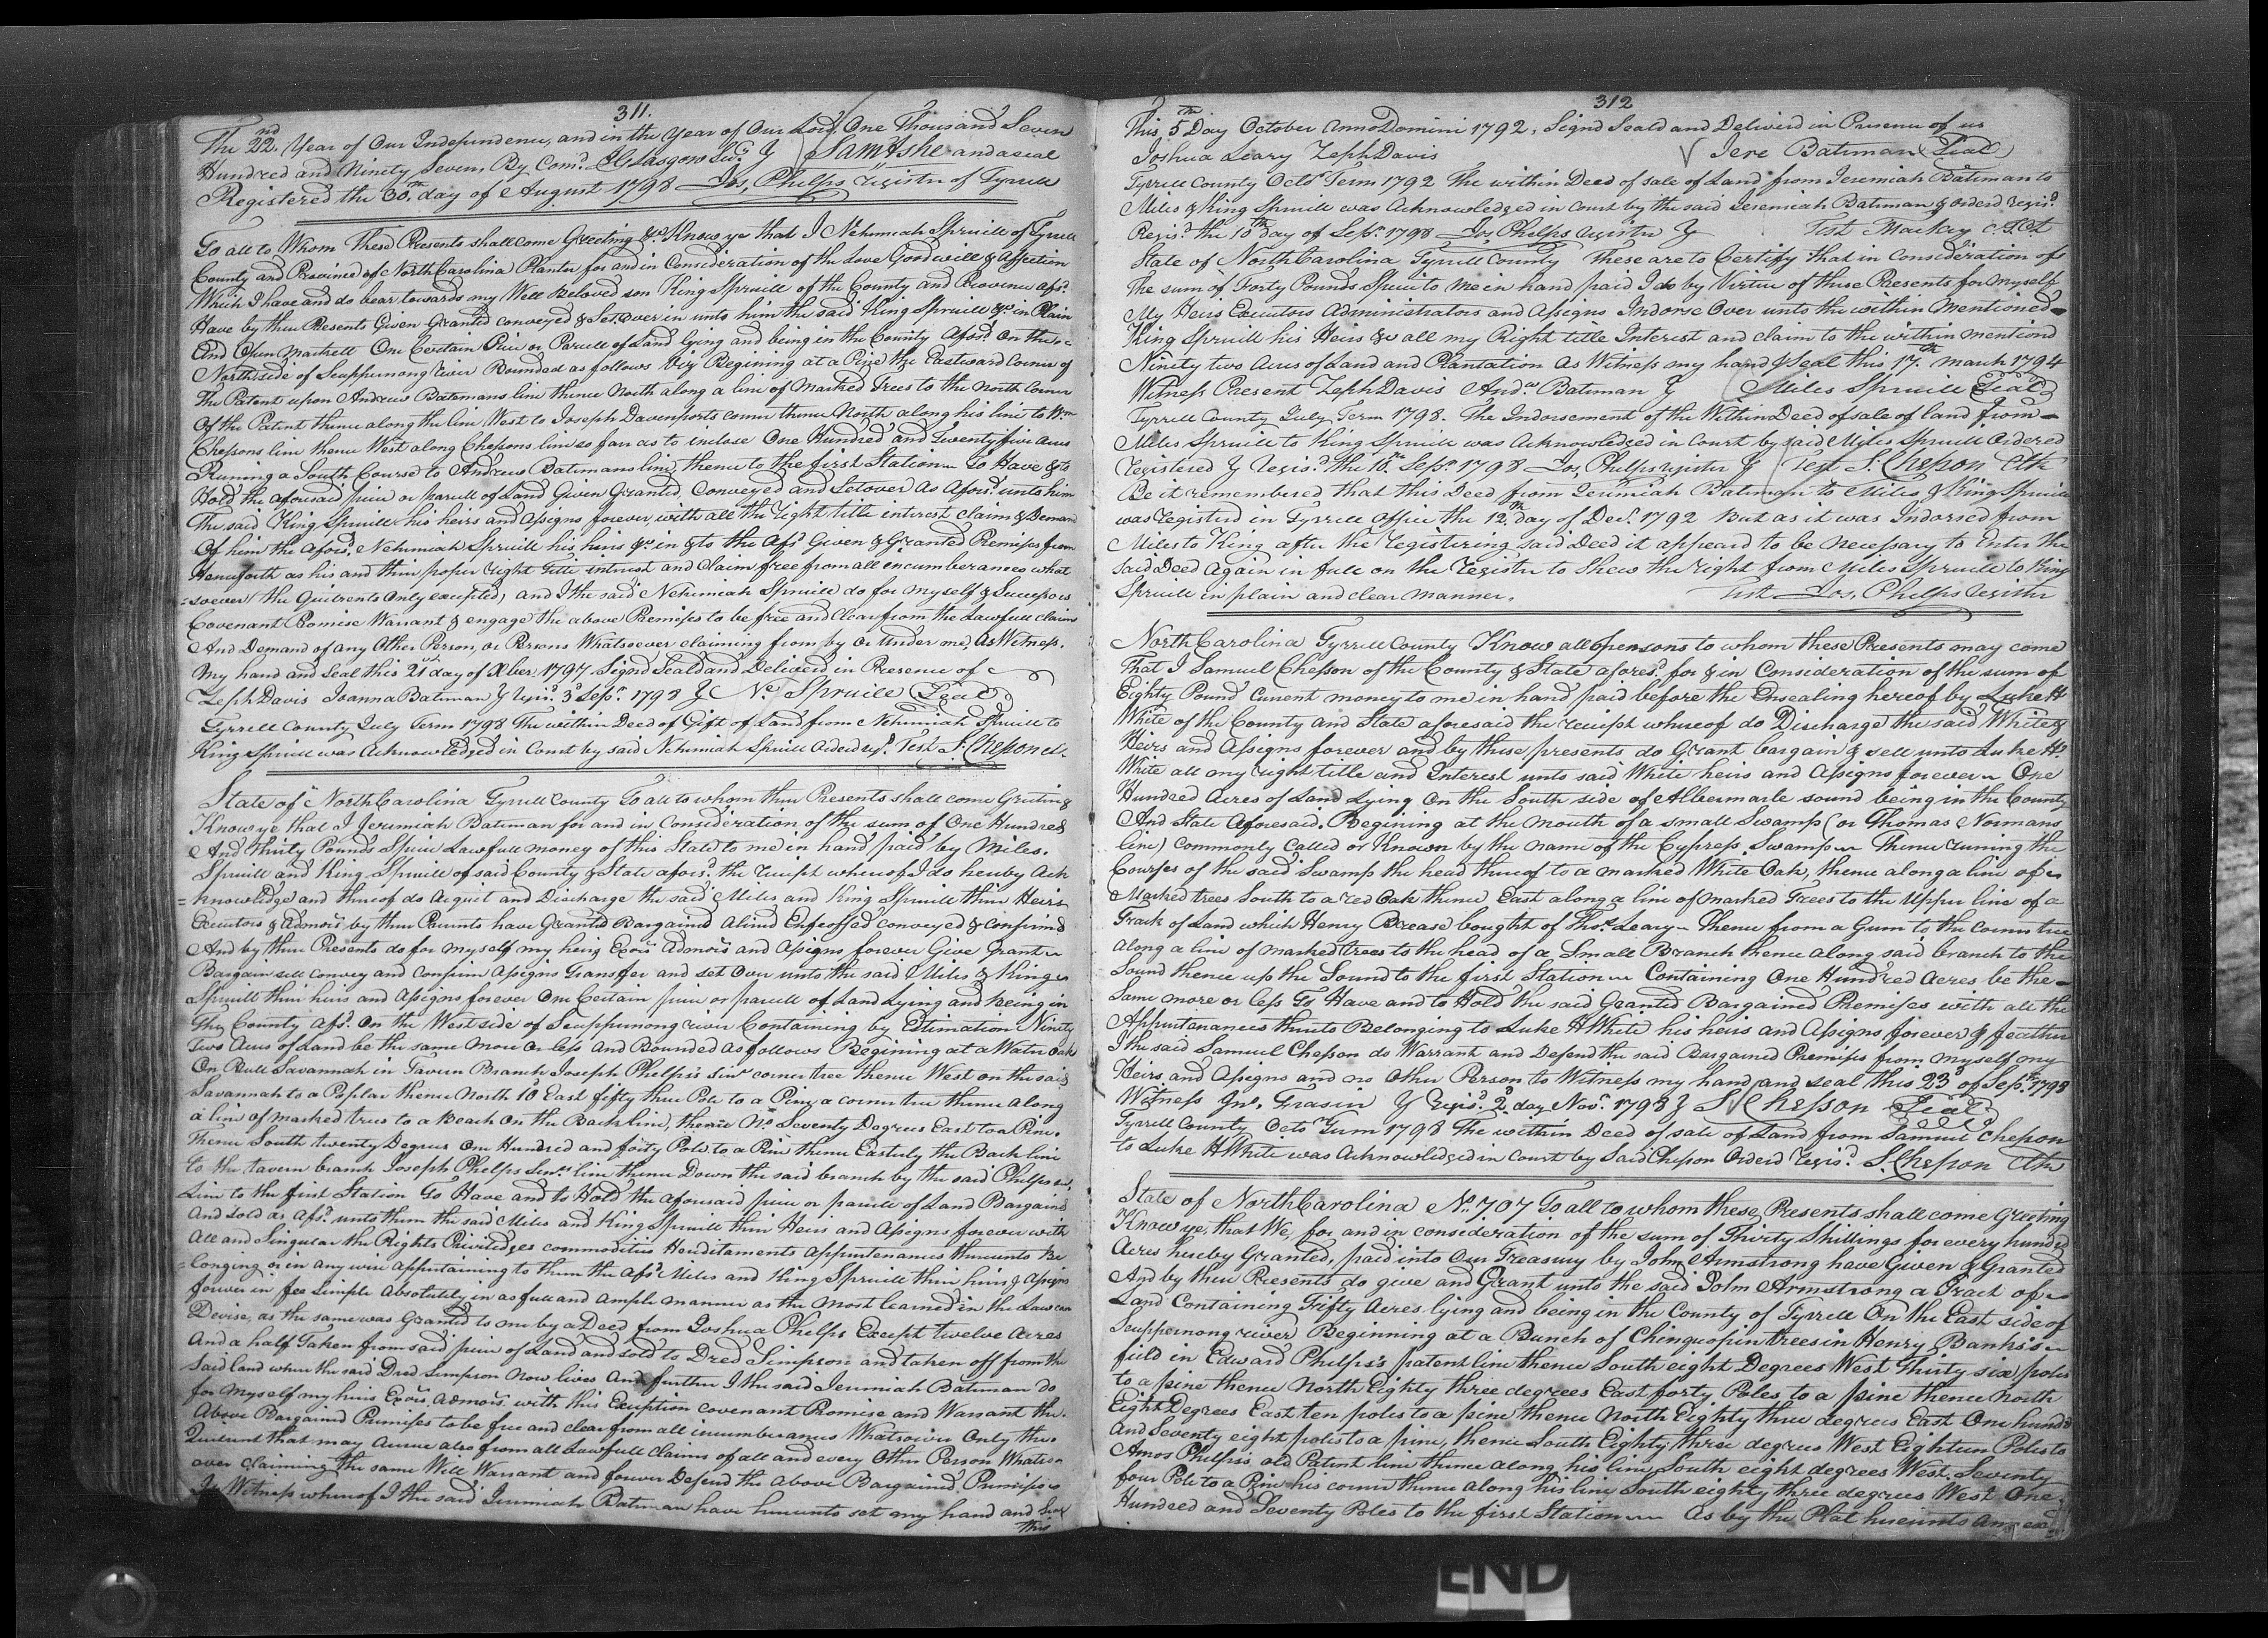 311.
The 22nd Year of Our Independence, and in the Year of Our Lord, One Thousand Seven
Hundred and Ninety Seven, By Comd. J Glasgow Secy. } Sam Ashe and a seal
Registered the 30th day of August 1798 Jos, Phelps register of Tyrrell
To all to Whom These Presents shall come Greeting &c Know ye that I Nehemiah Spruill of Tyrrell
County and Province of North Carolina Planter for and in Consideration of the Love Good will & Affection
Which I have and do bear towards my Well Beloved son King Spruill of the County and Province afsd.
Have by these Presents Given Granted conveyed & Set over in unto him the said King Spruill &c in Plain
And Open Markett One Certain Piece or Parcell of Land lying and being in the County aforsd. On the
North side of Scuppernong River Bounded as follows Viz Begining at a Pine the Eastward Corner of
The Patent upon Andrew Batemans line thence North along a line of Marked Trees to the North Corner
Of the Patent thence along the line West to Joseph Davenports corner thence North along his line to Wm
Chessons line thence West along Chessons line so far as to inclose One Hundred and Twenty five acres
Runing a South Course to Andrew Batemans line, thence to the first Station To Have & to
Hold the aforesaid piece or parcell of Land Given Granted, Conveyed and Setover As Aforsd. unto him
The said King Spruill his heirs and Assigns forever, with all the right title interest claim & Demand
Of him the Aforsd. Nehemiah Spruill his heirs &c in & to the Afsd Given & Granted Premises from
Henceforth as his and their proper right title interest and Claim free from all incumberances what
=soever (the Quitrents Only excepted) and I the said Nehemiah Spruill do for myself & Successors
Covenant Promise Warrant & engage the above Premises to be free and Clear from the Lawfull claim
And Demand of any Other Person, or Persons Whatsoever claiming from, by or Under me, As Witness.
My hand and Seal this 21st day of Xber. 1797. Signd Seald and Deliverd in Presence of
Zeph Davis Joanna Bateman } Regisd. 3d Sepr. 1798 } Nh. Spruill (Seal)
Tyrrell County July Term 1798 The within Deed of Gift of Land from Nehemiah Spruill to
King Spruill was Acknowledged in Court by said Nehemiah Spruill Orderd regd. Test S. Chesson Clk
State of North Carolina Tyrrell County To all to whom these Presents shall come Greeting
Know ye that I Jeremiah Bateman for and in Consideration of the sum of One Hundred
And thirty Pounds Specie Lawfull money of this State to me in hand paid by Miles.
Spruill and King Spruill of said County & State aforsd. the receipt whereof I do hereby Ack
=nowledge and thereof do Acquit and Discharge the said Miles and King Spruill their Heirs
Executors & Admors. by these Presents have Granted Bargaind Aliend Enfeoffed conveyed & Confirmd
And by these Presents do for myself my heirs Exors Admors and Assigns forever Give Grant
Bargain sell Convey and Confirm Assigns Transfer and set Over unto the said Miles & King
Spruill their heirs and Assigns forever One Certain piece or parcell of Land Lying and being in
The County afsd. On the West side of Scuppernong river Containing by Estimation Ninety
Two Acres of Land be the same More Or less and Bounded as follows Begining at a Water Oak
On Bull Savannah in Tavern Branch Joseph Phelps's Senr corner tree thence West on the said
Savannah to a Poplar thence North 10 East fifty three Pole to a Pine a corner tree thence along
a line of marked trees to a Beach On the Back line, thence No. Seventy Degrees East to a Pine.
Thence South twenty Degrees One Hundred and forty Pole to a Pine thence Easterly the Back line
to the tavern branch Joseph Phelps Senrs. line thence Down the said branch by the said Phelps
Line to the first Station To Have and to Hold the aforesaid piece or parcell of Land Bargaind
And sold as afsd. unto them the said Miles and King Spruill their Heirs and Assigns forever with
All and Singular the Rights Priviledges commodities Hereditaments Appurtenances thereunto Be
=longing or in any wise appurtaining to them the Afsd. Miles and King Spruill their heirs & Assigns
forever in fee Simple Absolutely in as full and ample manner as the Most learned in the Law can
Devise, as the same was Granted to me by a Deed from Joshua Phelps Except twelve Acres
And a half Taken from said piece of Land and sold to Dred Simpson and taken off from the
Said land where the said Dred Simpson now lives And further I the said Jeremiah Bateman do
for Myself my heirs Exors, Admors. with this Exception covenant Promise and Warrant the.
Above Bargaind Premises to be free and clear from all incumberances Whatsoever Only the
Quitrent that may Accrue also from all Lawfull claims of all and every Other Person Whatso
ever claiming the same Will Warrant and forever Defend the Above Bargained Premises
In Witness whereof I the said Jeremiah Bateman have hereunto set my hand and Seal
this
312
This 5th Day October Anno Domini 1792, Signd Seald and Deliverd in Presence of us
Joshua Leary Zeph Davis Jere Bateman (Seal)
Tyrrell County Octo. Term 1792 The within Deed of sale of Land from Jeremiah Bateman to
Miles & King Spruill was Acknowledged in Court by the said Jeremiah Bateman & orderd regisd.
Regisd. the 10th day of Sepr. 1798 Jos, Phelps register } Test Mackey C.T.Ct
State of North Carolina Tyrrell County These are to Certify that in Consideration of
The sum of Forty Pounds Specie to me in hand paid I do by Virtue of these Presents for myself
My Heirs Executors Administrators and Assigns Indorse Over unto the within Mentioned
King Spruill his Heirs &c all my Right title Interest and claim to the within mentiond
Ninety two Acres of Land and Plantation As Witness my hand & Seal this 17th March 1794
Witness Present Zeph Davis Andw Bateman } Miles Spruill (Seal)
Tyrrell County July Term 1798. The Indorsement of the Within Deed of sale of land from
Miles Spruill to King Spruill was Acknowledged in Court by said Miles Spruill Ordered
registered } regisd. the 10th Sepr. 1798 Jos, Phelps register } Test S. Chesson Clk
Be it remembered, that this Deed from Jeremiah Bateman to Miles & King Spruill
was registerd in Tyrrell Office the 12th day of Decr. 1792 But as it was Indorsed from
Miles to King after the registering said Deed it appeard to be necessary to Enter the
Said Deed Again in full on the register to Shew the right from Miles Spruill to King
Spruill in plain and clear manner. Test Jos, Phelps register
North Carolina Tyrrell County Know all persons to whom these Presents may come
That I Samuel Chesson of the County & State aforesd. for & in Consideration of the sum of
Eighty Pound Current money to me in hand paid before the Ensealing hereof by Luke H
White of the County and State aforesaid the receipt whereof do Discharge the said White &
Heirs and Assigns forever and by these presents do Grant bargain & sell unto Luke H.
White all my right title and Interest unto said White heirs and Assigns forever One
Hundred Acres of Land Lying On the South side of Albermarle sound being in the County
And State Aforesaid. Begining at the mouth of a small Swamp (or Thomas Normans
line) Commonly Called or Known by the name of the Cypress Swamp Thence runing the
Courses of the said Swamp the head thereof to a marked White Oak, thence along a line of
Marked trees South to a red Oak thence East along a line of marked Trees to the Upper line of a
Track of Land which Henry Crease bought of Thos. Leary Thence from a Gum to the Corner tree
along a line of marked trees to the head of a Small Branch thence along said branch to the
Sound thence up the Sound to the first Station Containing One Hundred Acres be the
Same more or less To Have and to Hold the said Granted Bargained Premises with all the
Appurtenances thereto Belonging to Luke H White his heirs and Assigns forever & further
I the said Samuel Chesson do Warrant and Defend the said Bargained Premises from myself my
Heirs and Assigns and no Other Person to Witness my hand and seal this 23d of Sepr. 1798
Witness Jno. Frasier } regisd. 2d day Novr. 1798 } S Chesson (Seal)
Tyrrell County Octo Term 1798 The within Deed of sale of Land from Samuel Chesson
to Luke H White was Acknowledged in Court by Said Chesson Orderd regisd. S. Chesson Clk
State of North Carolina No. 707 To all to whom these Presents shall come Greeting
Know ye, that We, for and in consideration of the sum of Thirty Shillings for every hundred
Acres hereby Granted, paid into Our Treasury by John Armstrong have Given & Granted
And by these Presents do give and Grant unto the said John Armstrong a Tract of
Land Containing Fifty Acres lying and being in the County of Tyrrell On the East side of
Scuppernong river Beginning at a Bunch of Chinquopin trees in Henry Banks's
field in Edward Phelps's patent line thence South eight Degrees West Thirty six poles
to a pine thence North Eighty three degrees East forty Poles to a pine thence North
Eight Degrees East ten poles to a pine thence North Eighty three degrees East One hundd
And Seventy eight poles to a pine, thence South Eighty three degrees West Eighteen Poles to
Amos Phelps's old Patent line thence along his line South eight degrees West Seventy
four Pole to a Pine his corner thence along his line South eighty three degrees West One
Hundred and Seventy Poles to the first Station As by the Plat hereunto Annexed
END